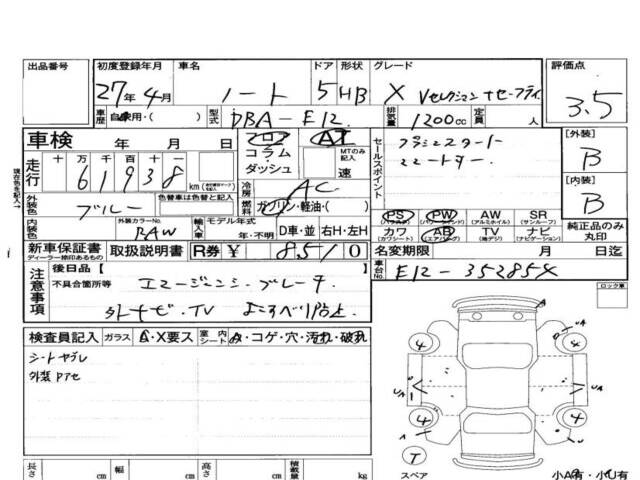 出品番号 初度登録年月 車名 ドア 形状 グレード 評価点
27年 4月 ノート 5 HB X Vセレクション+セーフティ 3.5
車歴 自家用・( ) 型式 DBA-E12 排気量 1200cc 定員 人
車検 年 月 日 フロア コラム・ダッシュ AT MTのみ記入 速
セールスポイント プッシュスタート
[外装] B
走行 十 万 千 百 十 一
61938 km
冷房 AC
[内装] B
外装色 ブルー 色替車は色替と記入 燃料 ガソリン・軽油・( )
PS (パワステ) PW (パワーウィンド) AW (アルミホイル) SR (サンルーフ)
内装色 外装カラーNo. RAW 輸入車 モデル年式 年・不明 D車・並 右H・左H
カワ (カワシート) AB (エアバッグ) TV (地デジ) ナビ (ナビゲーション) 純正品のみ丸印
新車保証書 ディーラー捺印あるもの 取扱説明書 R券 ¥ 8510
名変期限 月 日迄
注意事項 後日品【
車台No. E12-352854
不具合箇所等 エマージェンシーブレーキ
ロック車
外ナビ・TV よこすべり防止
現在色を記入→
検査員記入 ガラス A・X要ス 室内シート A・コゲ・穴・汚れ・破れ
シートヤブレ
外装Pアセ
4 4
A U
UA UA
4 4
A A
T
スペア 小A有・小U有
長さ cm 幅 cm 高さ cm 積載量 kg